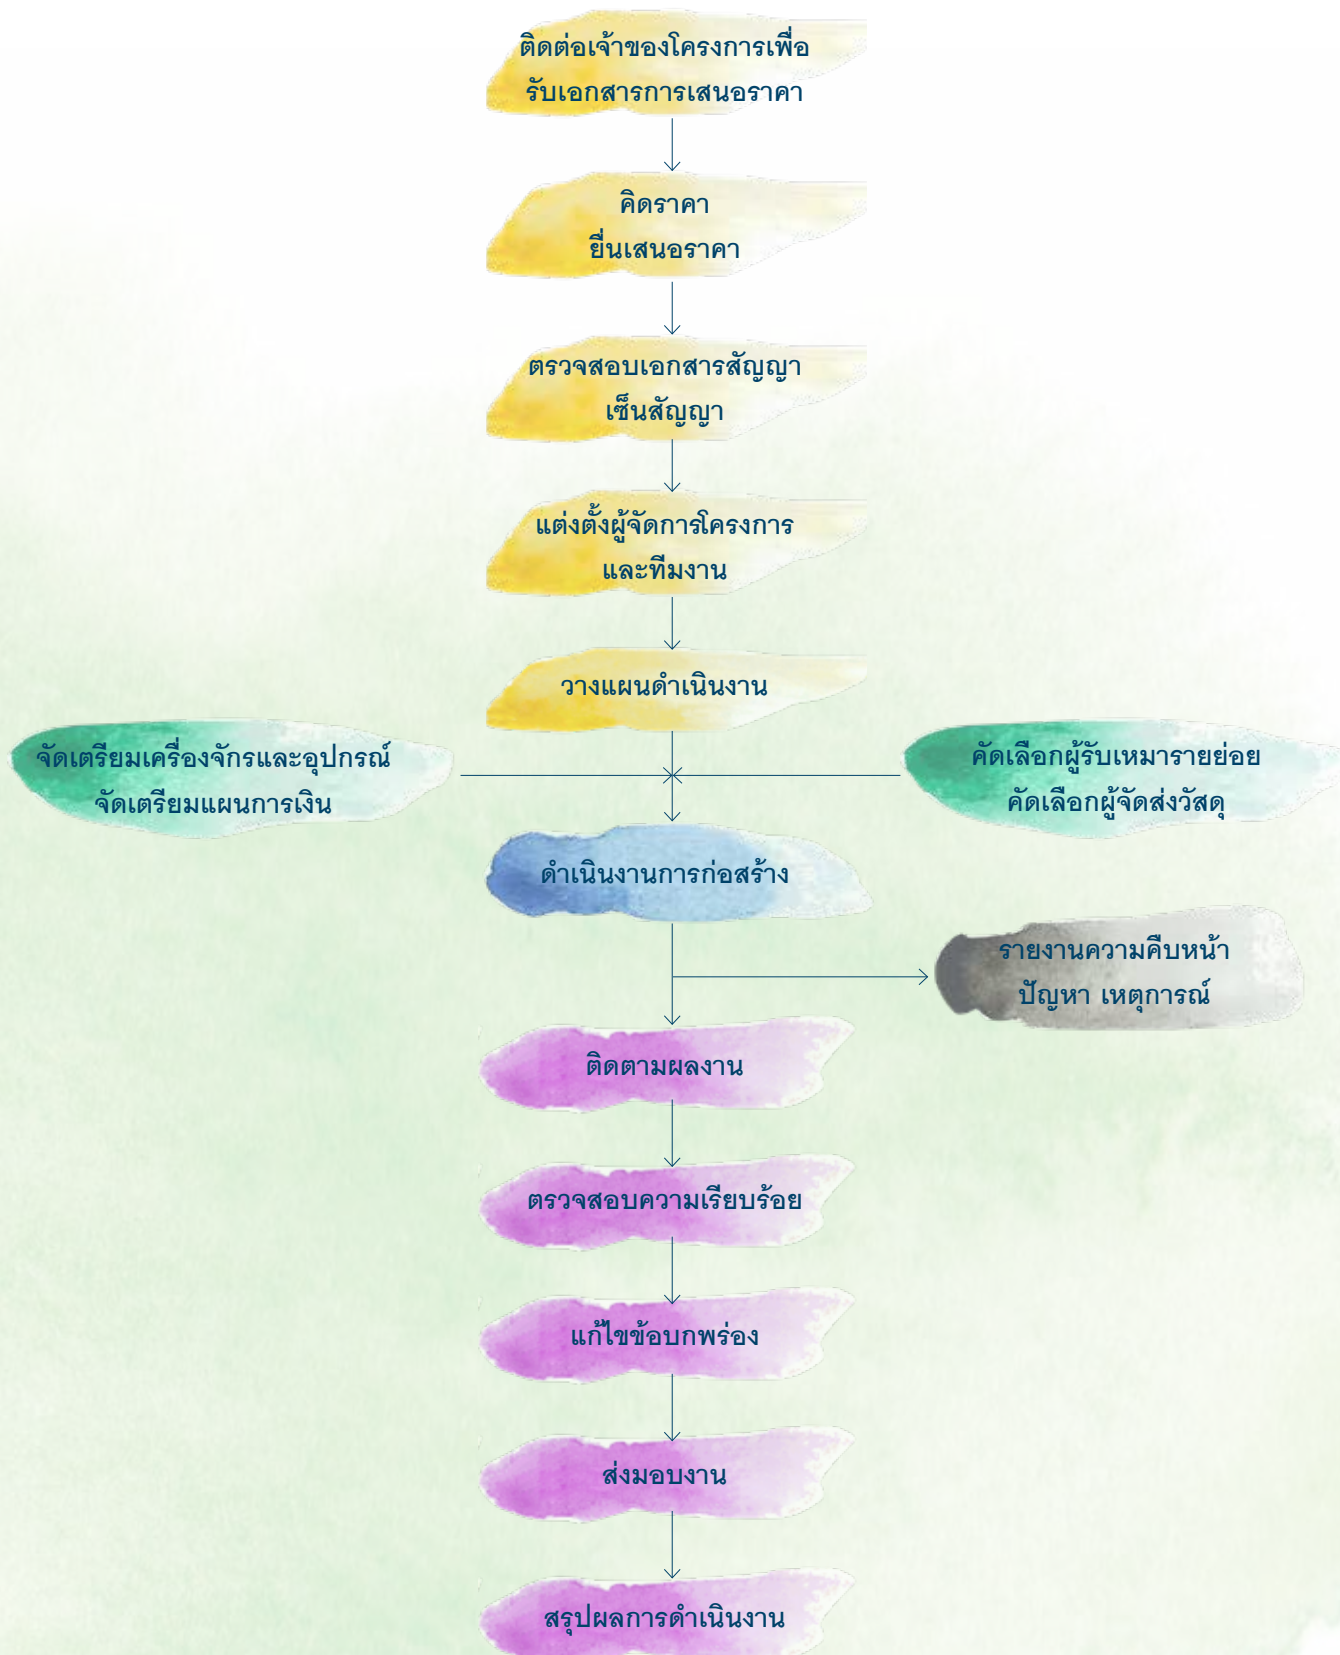 ติดต่อเจ้าของโครงการเพื่อ
รับเอกสารการเสนอราคา
คิดราคา
ยื่นเสนอราคา
ตรวจสอบเอกสารสัญญา
เซ็นสัญญา
แต่งตั้งผู้จัดการโครงการ
และทีมงาน
วางแผนดำเนินงาน
จัดเตรียมเครื่องจักรและอุปกรณ์
จัดเตรียมแผนการเงิน
คัดเลือกผู้รับเหมารายย่อย
คัดเลือกผู้จัดส่งวัสดุ
ดำเนินงานการก่อสร้าง
รายงานความคืบหน้า
ปัญหา เหตุการณ์
ติดตามผลงาน
ตรวจสอบความเรียบร้อย
แก้ไขข้อบกพร่อง
ส่งมอบงาน
สรุปผลการดำเนินงาน